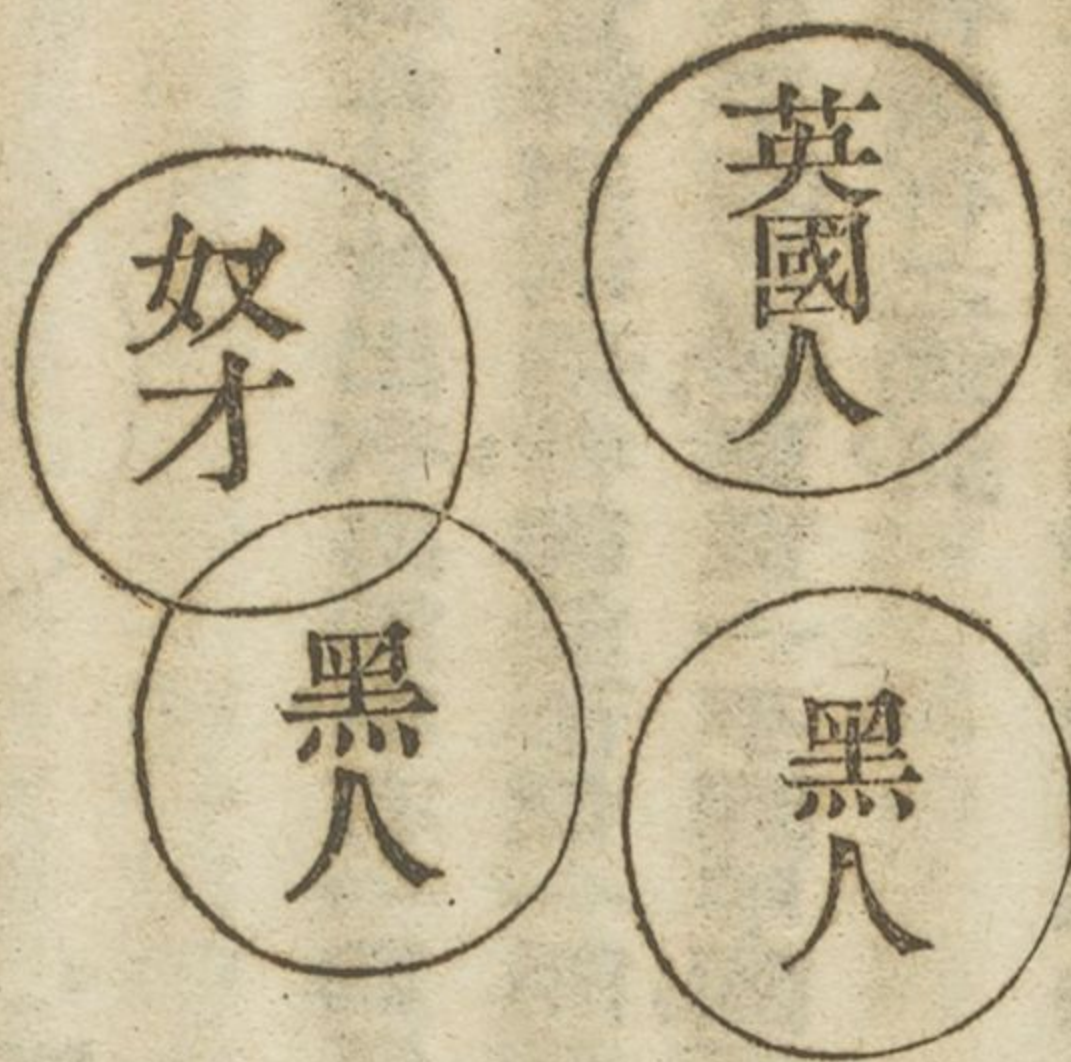 英國人
黑人
奴才
黑人